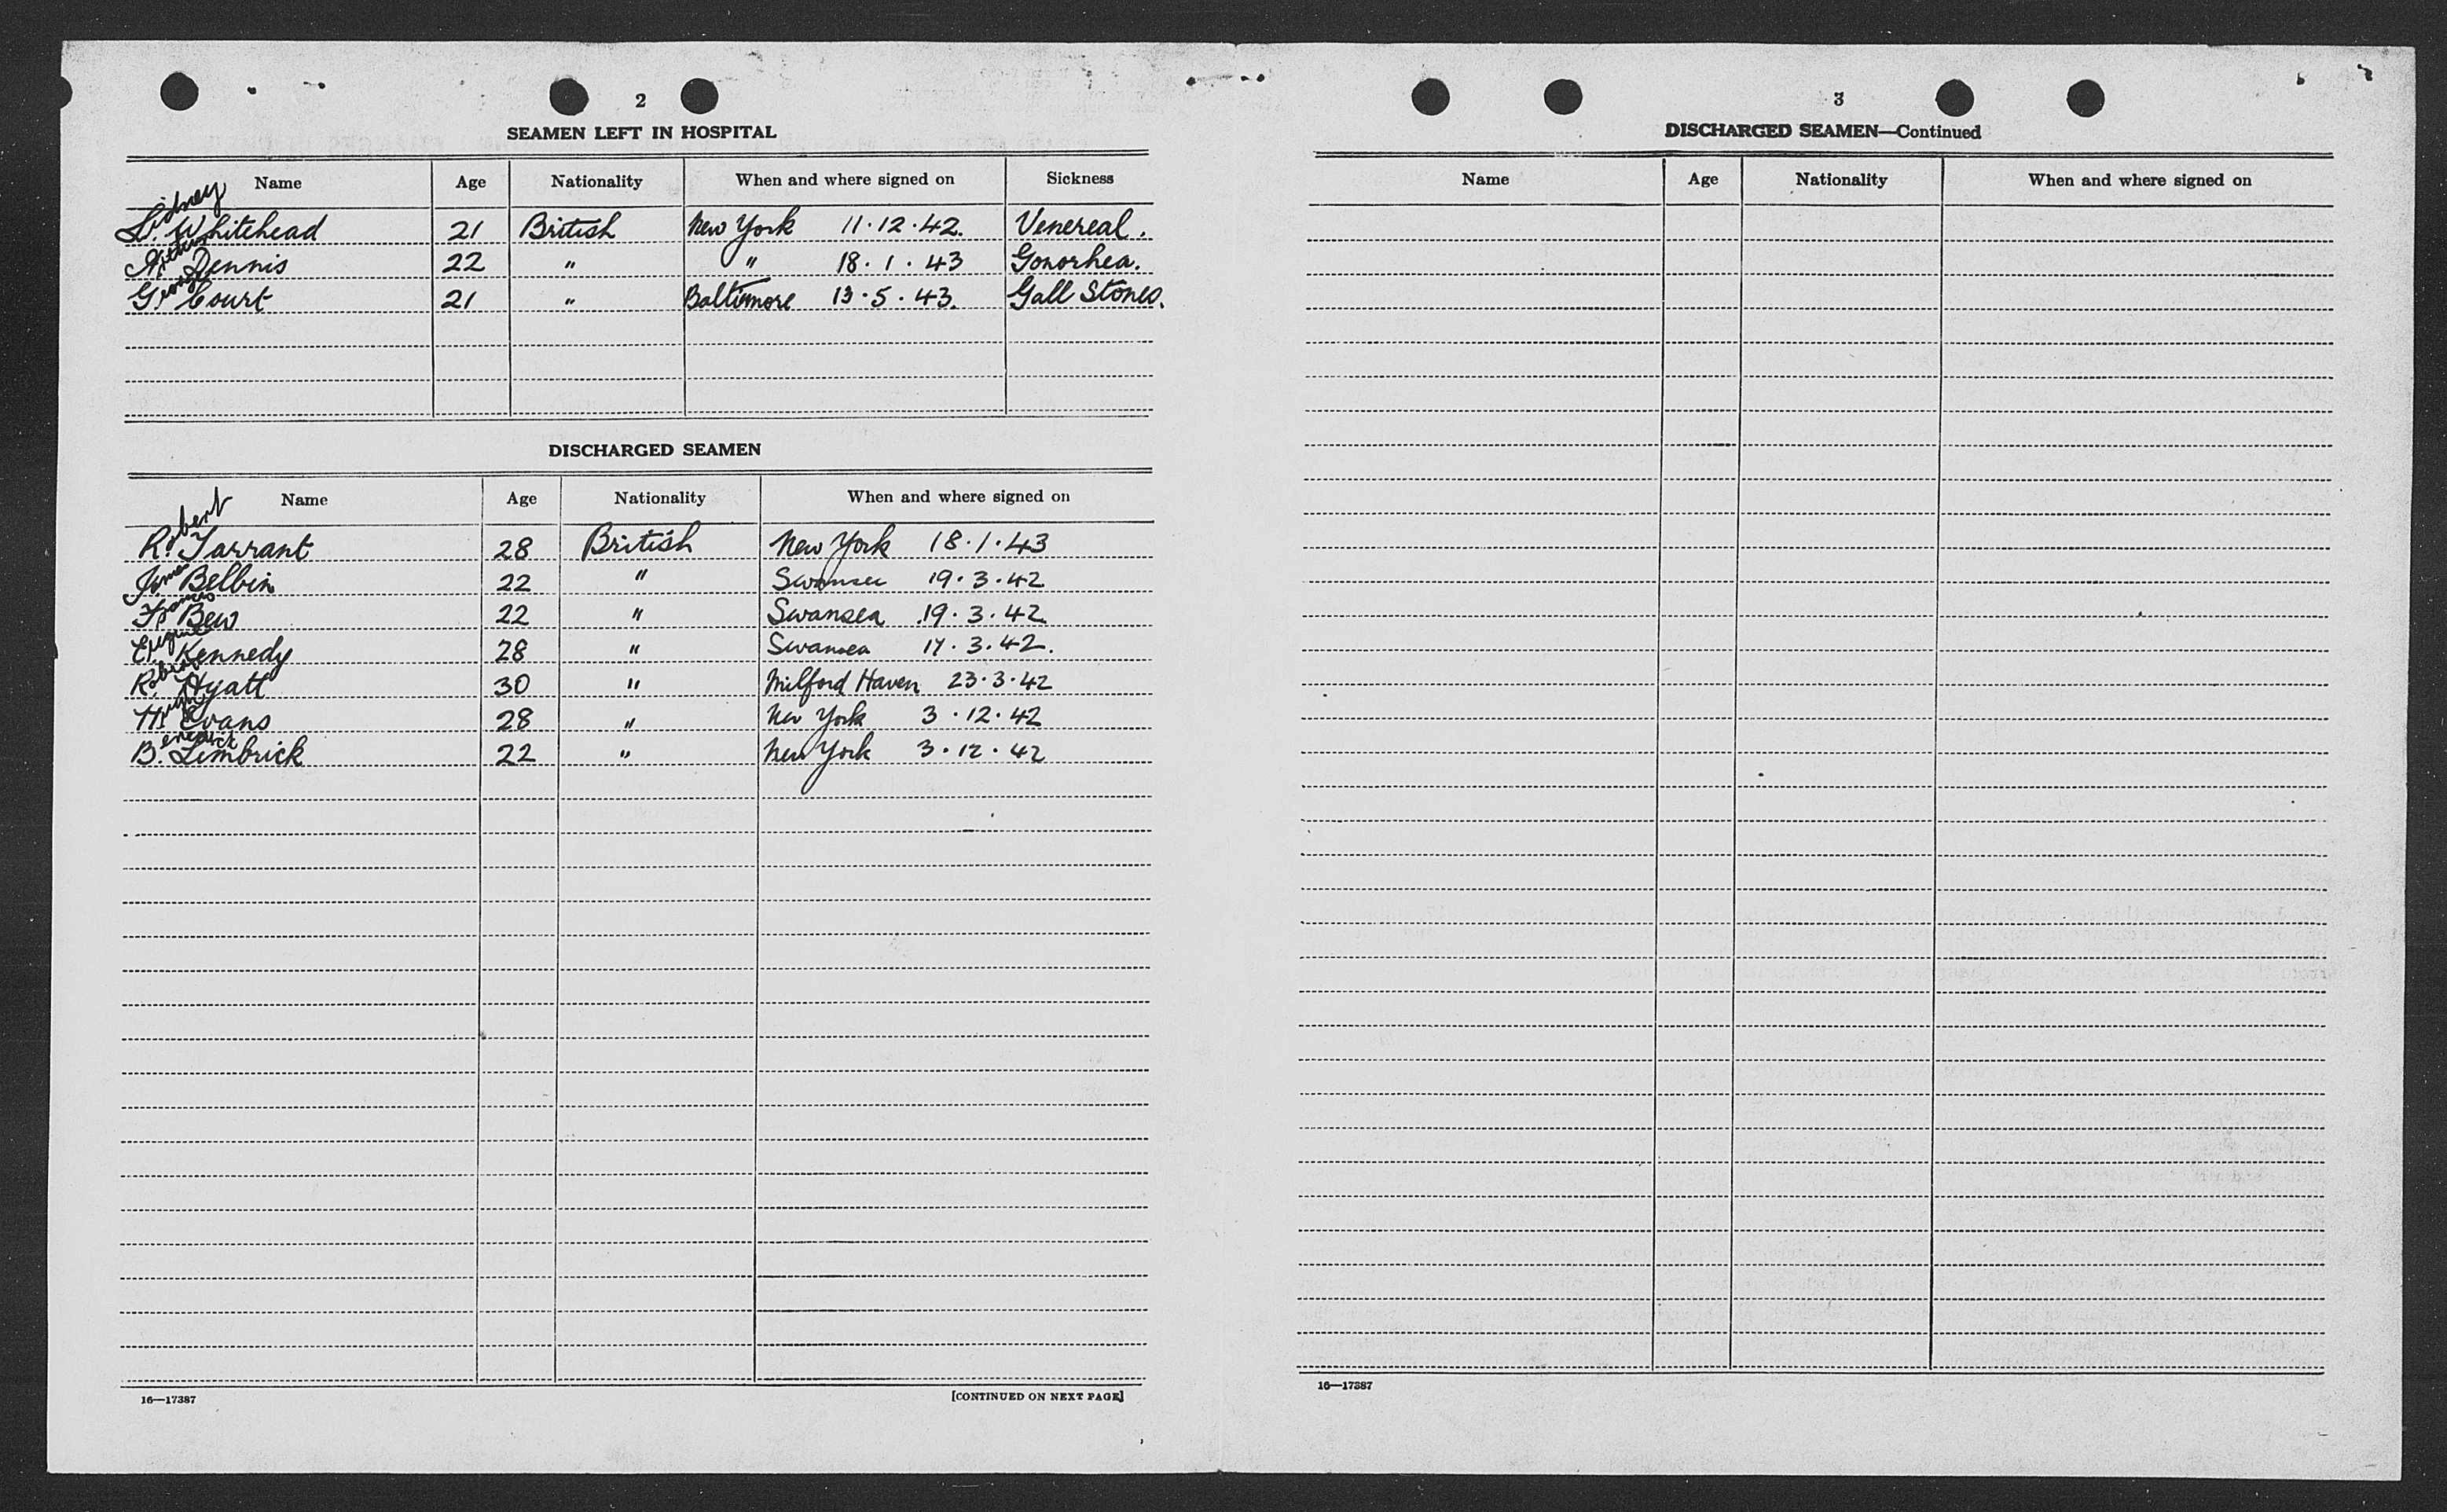 2
SEAMEN LEFT IN HOSPITAL
Name Age Nationality When and where signed on Sickness
Sidney
S. Whitehead 21 British New York 11·12·42. Venereal.
Dennis 22 " " 18·1·43 Gonorhea.
George
G. Court 21 " Baltimore 13·5·43. Gall Stones.
DISCHARGED SEAMEN
Name Age Nationality When and where signed on
Robert
R. Tarrant 28 British New York 18·1·43
James
J. Belbin 22 " Swansea 19·3·42
Francis
F. Bew 22 " Swansea 19·3·42
Kennedy 28 " Swansea 17·3·42.
R. Hyatt 30 " Milford Haven 23·3·42
Hugh
H. Evans 28 " New York 3·12·42
Benedict
B. Limbrick 22 " New York 3·12·42
16—17387
[CONTINUED ON NEXT PAGE]
3
DISCHARGED SEAMEN—Continued
Name Age Nationality When and where signed on
16—17387